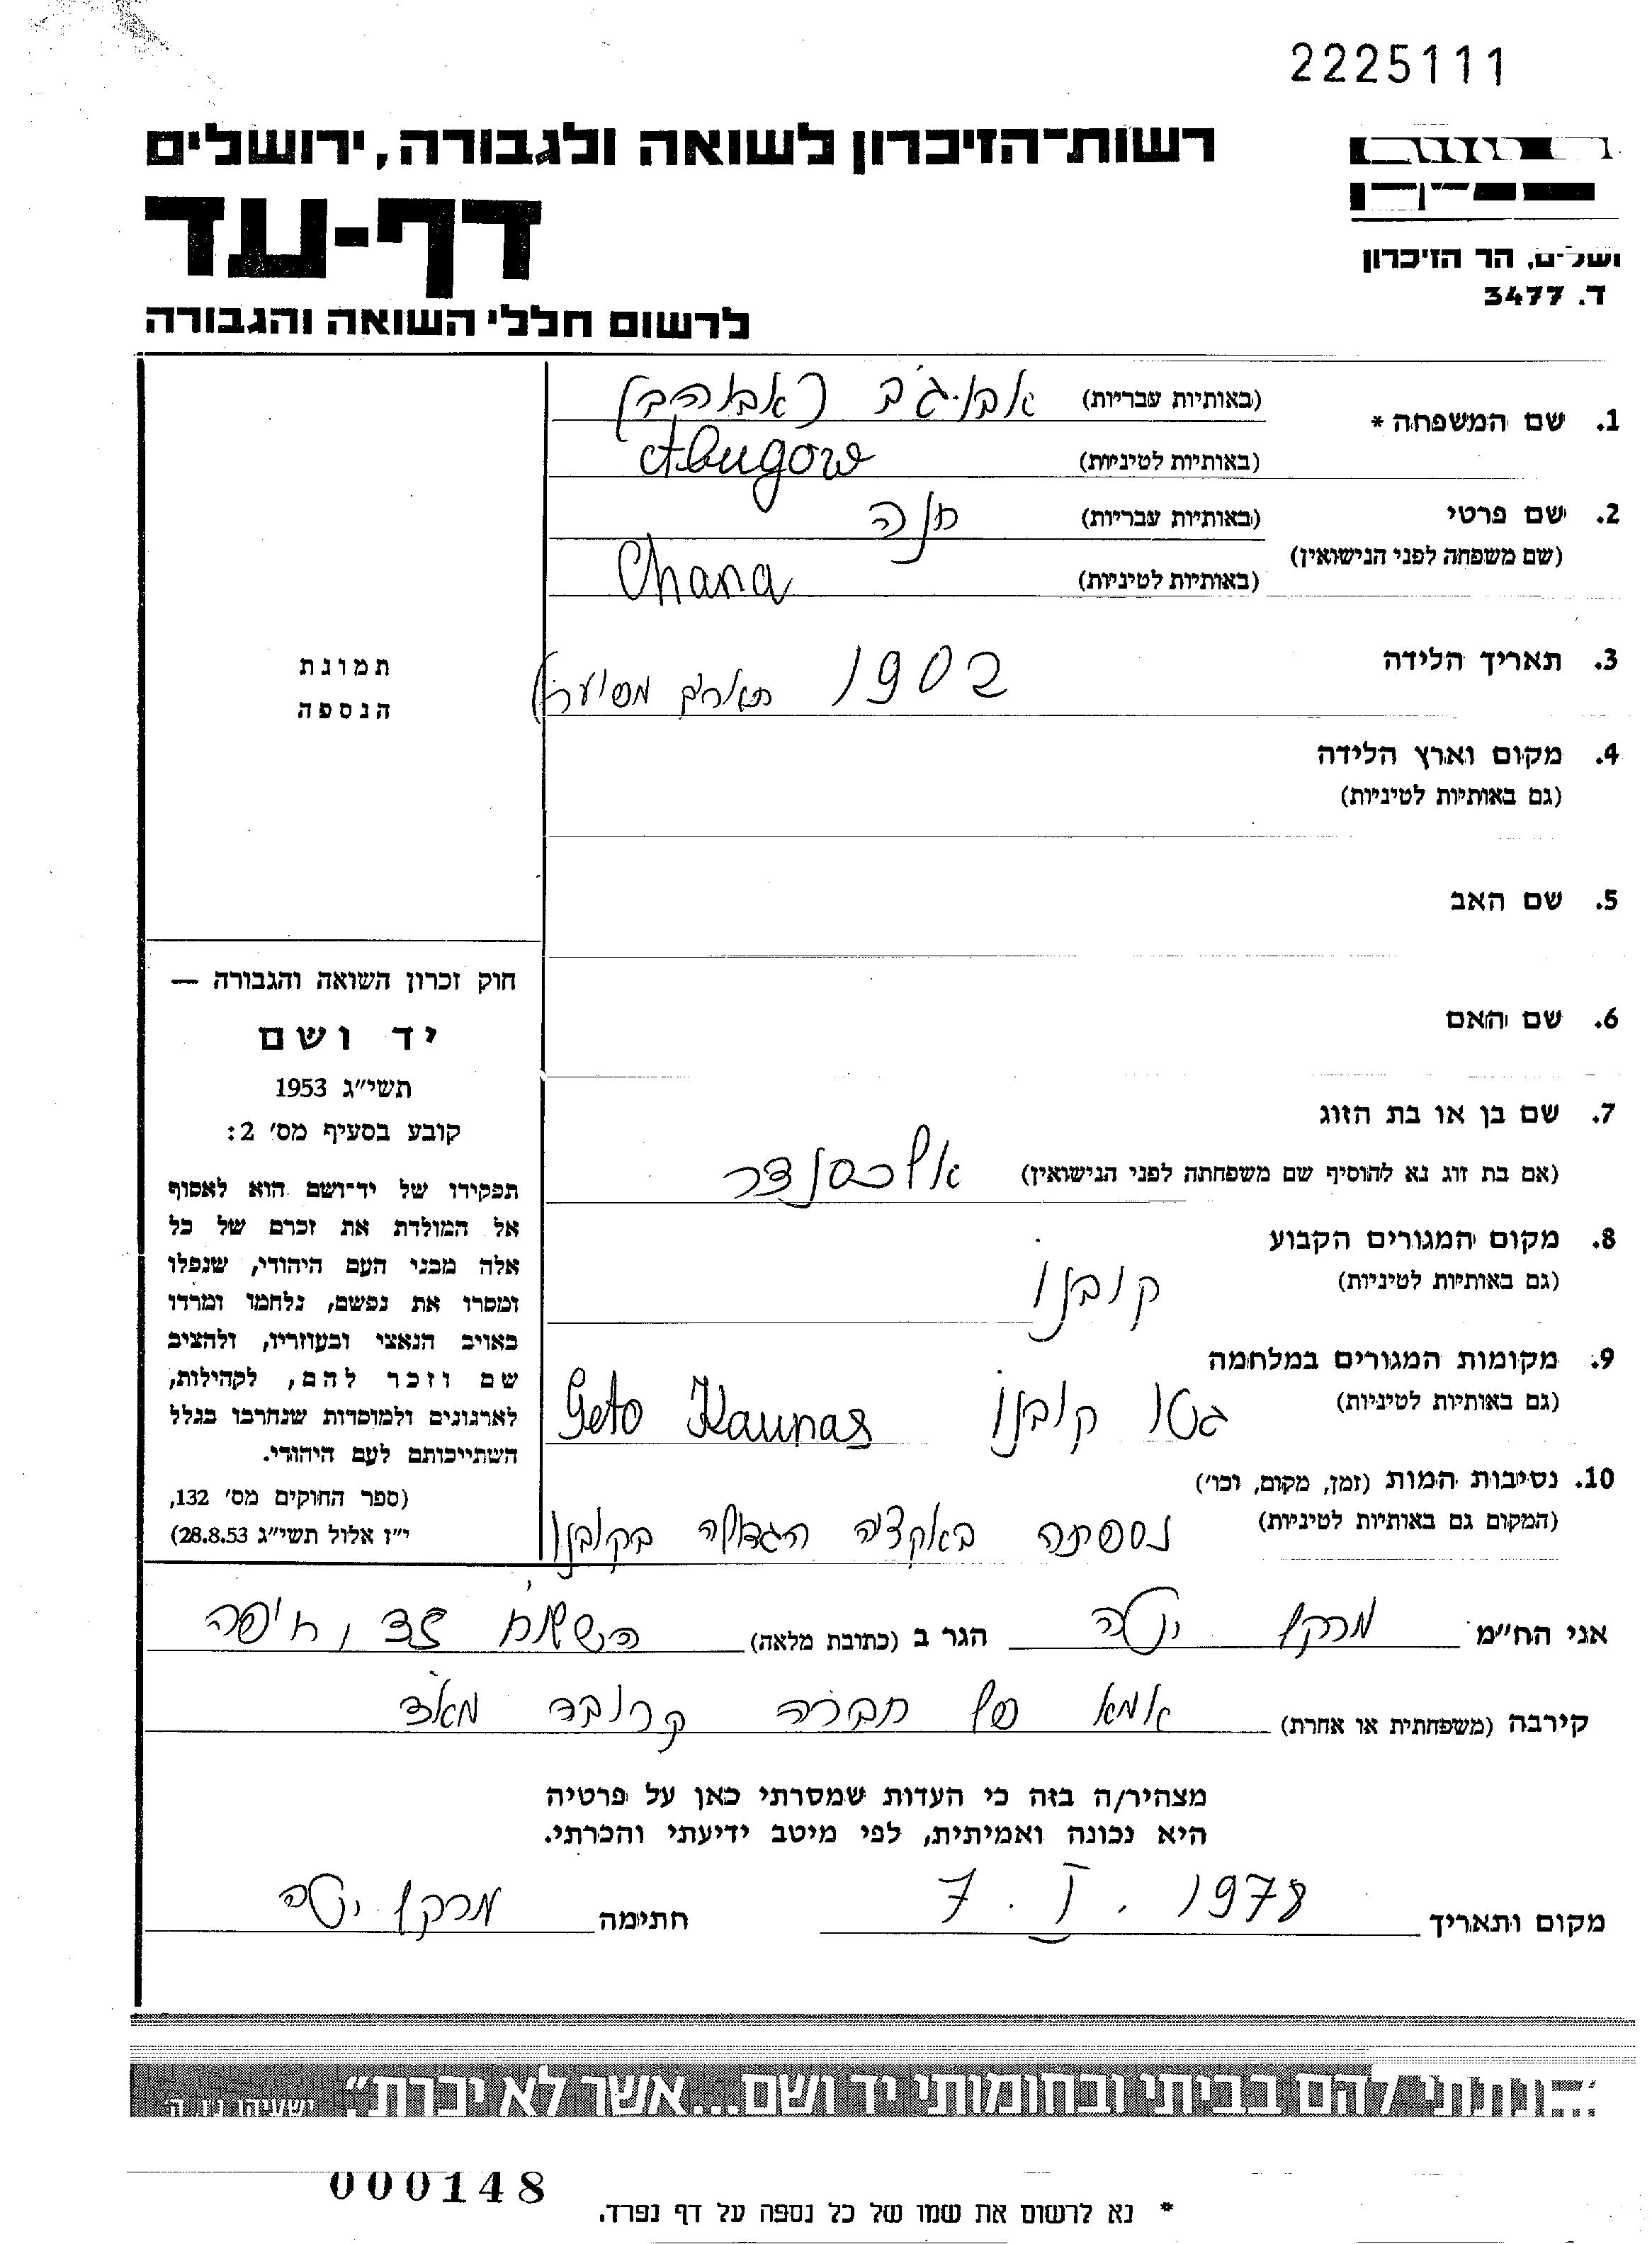 2225111
רשות־הזיכרון לשואה ולגבורה, ירושלים
דף-עד
ושלים, הר הזיכרון
ד. 3477
לרשום חללי השואה והגבורה
1. שם המשפחה *
(באותיות עבריות)
(באותיות לטיניות) Abugow
2. שם פרטי
(באותיות עבריות) חנה
(שם משפחה לפני הנישואין)
(באותיות לטיניות) Chana
3. תאריך הלידה 1902
4. מקום וארץ הלידה
(גם באותיות לטיניות)
5. שם האב
6. שם האם
7. שם בן או בת הזוג
(אם בת זוג נא להוסיף שם משפחתה לפני הנישואין) אלכסנדר
8. מקום המגורים הקבוע
(גם באותיות לטיניות) קובנו
9. מקומות המגורים במלחמה
(גם באותיות לטיניות) גטו קובנו Geto Kaunas
10. נסיבות המות (זמן, מקום, וכו')
(המקום גם באותיות לטיניות) נספתה באקציה הגדולה בקובנו
תמונת
הנספה
חוק זכרון השואה והגבורה —
יד ושם
תשי״ג 1953
קובע בסעיף מס׳ 2:
תפקידו של יד־ושם הוא לאסוף
אל המולדת את זכרם של כל
אלה מבני העם היהודי, שנפלו
ומסרו את נפשם, נלחמו ומרדו
באויב הנאצי ובעוזריו, ולהציב
שם וזכר להם, לקהילות,
לארגונים ולמוסדות שנחרבו בגלל
השתייכותם לעם היהודי.
(ספר החוקים מס׳ 132,
י״ז אלול תשי״ג 28.8.53)
אני הח״מ מרקן יטה הגר ב (כתובת מלאה) חיפה
קירבה (משפחתית או אחרת) אמא של חברה קרובה מאד
מצהיר/ה בזה כי העדות שמסרתי כאן על פרטיה
היא נכונה ואמיתית, לפי מיטב ידיעתי והכרתי.
מקום ותאריך 7. I. 1978 חתימה מרקן יטה
...ונתתי להם בביתי ובחומותי יד ושם...אשר לא יכרת״. ישעיהו נו, ה׳
000148
* נא לרשום את שמו של כל נספה על דף נפרד.